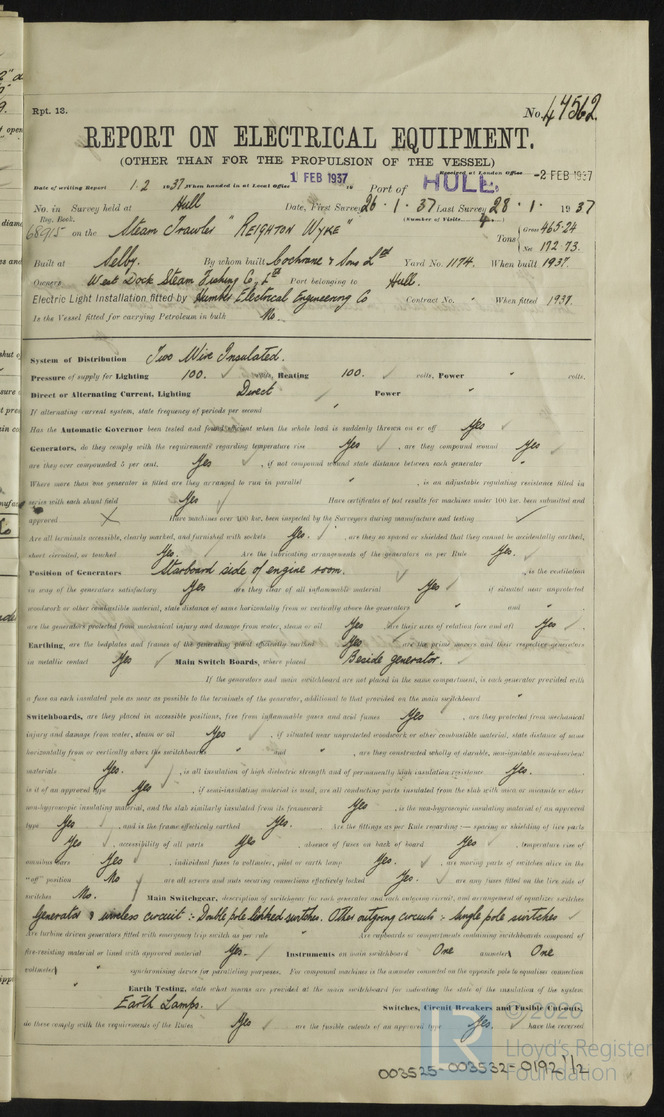 Rpt. 13.
No. 44562.
REPORT ON ELECTRICAL EQUIPMENT.
(OTHER THAN FOR THE PROPULSION OF THE VESSEL)
Received at London Office -2 FEB 1937
Date of writing Report 1.2 1937 When handed in at Local Office 1 FEB 1937 19 Port of HULL.
No. in Survey held at Hull Date, First Survey 26.1.37 Last Survey 28.1.1937
Reg. Book. (Number of Visits 4)
68915 on the Steam Trawler "REIGHTON WYKE" Tons { Gross 465.24
Net 172.73
Built at Selby. By whom built Cochrane & Sons Ltd Yard No. 1174. When built 1937.
Owners West Dock Steam Fishing Co, Ltd Port belonging to Hull.
Electric Light Installation fitted by Humber Electrical Engineering Co Contract No. " When fitted 1937.
Is the Vessel fitted for carrying Petroleum in bulk No.
System of Distribution Two Wire Insulated.
Pressure of supply for Lighting 100. volts, Heating 100. volts, Power " volts.
Direct or Alternating Current, Lighting Direct Power "
If alternating current system, state frequency of periods per second "
Has the Automatic Governor been tested and found efficient when the whole load is suddenly thrown on or off Yes
Generators, do they comply with the requirements regarding temperature rise Yes, are they compound wound Yes
are they over compounded 5 per cent. Yes, if not compound wound state distance between each generator "
Where more than one generator is fitted are they arranged to run in parallel ", is an adjustable regulating resistance fitted in
series with each shunt field Yes Have certificates of test results for machines under 100 kw. been submitted and
approved Have machines over 100 kw. been inspected by the Surveyors during manufacture and testing
Are all terminals accessible, clearly marked, and furnished with sockets Yes., are they so spaced or shielded that they cannot be accidentally earthed,
short circuited, or touched Yes. Are the lubricating arrangements of the generators as per Rule Yes.
Position of Generators Starboard side of engine room., is the ventilation
in way of the generators satisfactory Yes are they clear of all inflammable material Yes if situated near unprotected
woodwork or other combustible material, state distance of same horizontally from or vertically above the generators " and "
are the generators protected from mechanical injury and damage from water, steam or oil Yes are their axes of rotation fore and aft Yes
Earthing, are the bedplates and frames of the generating plant efficiently earthed Yes are the prime movers and their respective generators
in metallic contact Yes Main Switch Boards, where placed Beside generator.
If the generators and main switchboard are not placed in the same compartment, is each generator provided with
a fuse on each insulated pole as near as possible to the terminals of the generator, additional to that provided on the main switchboard "
Switchboards, are they placed in accessible positions, free from inflammable gases and acid fumes Yes, are they protected from mechanical
injury and damage from water, steam or oil Yes, if situated near unprotected woodwork or other combustible material, state distance of same
horizontally from or vertically above the switchboards " and ", are they constructed wholly of durable, non-ignitable non-absorbent
materials Yes., is all insulation of high dielectric strength and of permanently high insulation resistance Yes.
is it of an approved type Yes, if semi-insulating material is used, are all conducting parts insulated from the slab with mica or micanite or other
non-hygroscopic insulating material, and the slab similarly insulated from its framework Yes, is the non-hygroscopic insulating material of an approved
type Yes, and is the frame effectively earthed Yes. Are the fittings as per Rule regarding:— spacing or shielding of live parts
Yes, accessibility of all parts Yes, absence of fuses on back of board Yes, temperature rise of
omnibus bars Yes, individual fuses to voltmeter, pilot or earth lamp Yes., are moving parts of switches alive in the
"off" position No are all screws and nuts securing connections effectively locked Yes. are any fuses fitted on the live side of
switches No. Main Switchgear, description of switchgear for each generator and each outgoing circuit, and arrangement of equaliser switches
Generator & wireless circuit :- Double pole linked switches. Other outgoing circuits :- single pole switches
Are turbine driven generators fitted with emergency trip switch as per rule " Are cupboards or compartments containing switchboards composed of
fire-resisting material or lined with approved material Yes. Instruments on main switchboard One ammeter One
voltmeter " synchronising device for paralleling purposes. For compound machines is the ammeter connected on the opposite pole to equaliser connection
" Earth Testing, state what means are provided at the main switchboard for indicating the state of the insulation of the system
Earth Lamps. Switches, Circuit Breakers and Fusible Cut-outs,
do these comply with the requirements of the Rules Yes are the fusible cutouts of an approved type Yes. have the reversed
© 2020
Lloyd's Register
Foundation
003525-003532-0192 1/2